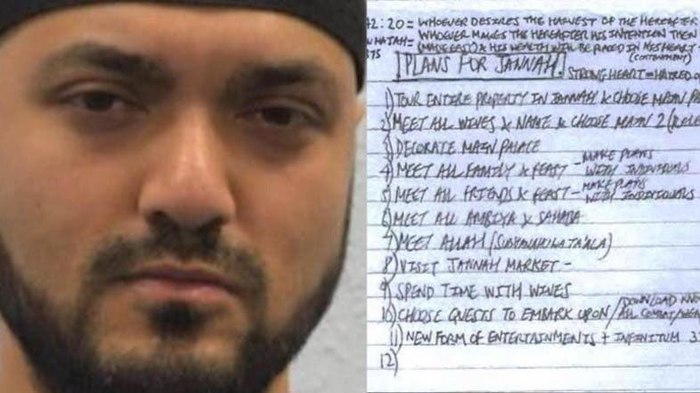 42:20 = WHOEVER DESIRES THE HARVEST OF THE HEREAFTER
WHOEVER MAKES THE HEREAFTER HIS INTENTION THEN
(MADE EASY) & HIS WEALTH WILL BE PLACED IN HIS HEART
(CONTENTMENT)
PLANS FOR JANNAH
STRONG HEART = HATRED
1) TOUR ENTIRE PROPERTY IN JANNAH & CHOOSE MAIN
2) MEET ALL WIVES & NAME & CHOOSE MAIN 2
3) DECORATE MAIN PALACE
4) MEET ALL FAMILY & FEAST - MAKE PLANS WITH INDIVIDUALS
5) MEET ALL FRIENDS & FEAST - MAKE PLANS WITH INDIVIDUALS
6) MEET ALL AMBIYA & SAHABA
7) MEET ALLAH (SUBHANAHU TA'ALA)
8) VISIT JANNAH MARKET -
9) SPEND TIME WITH WIVES
10) CHOOSE QUESTS TO EMBARK UPON / DOWNLOAD ALL COMBAT
11) NEW FORM OF ENTERTAINMENTS + INFINITUM
12)